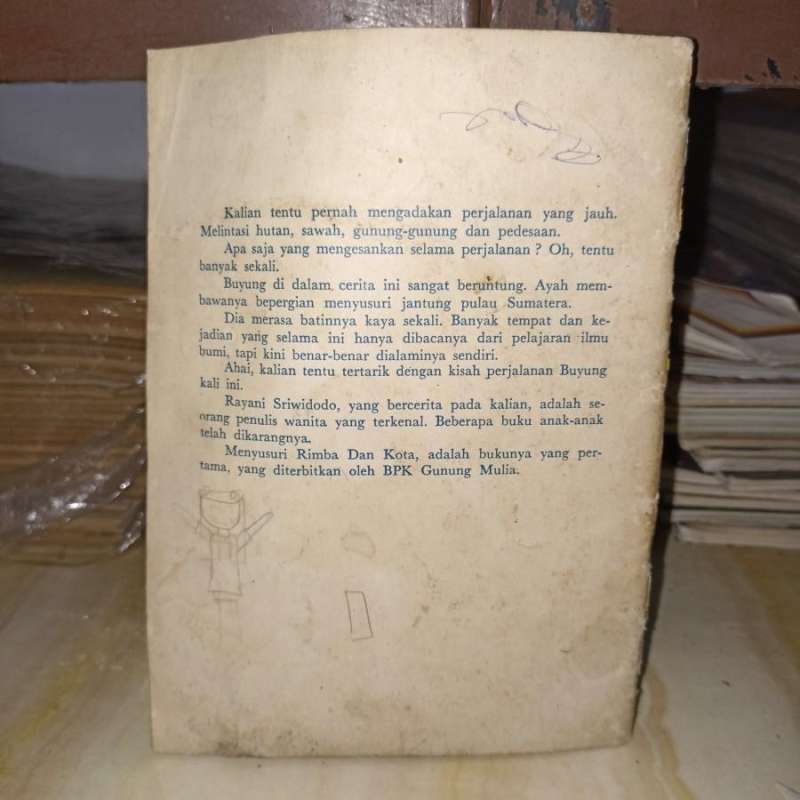 Kalian tentu pernah mengadakan perjalanan yang jauh.
Melintasi hutan, sawah, gunung-gunung dan pedesaan.
Apa saja yang mengesankan selama perjalanan ? Oh, tentu
banyak sekali.
Buyung di dalam cerita ini sangat beruntung. Ayah mem-
bawanya bepergian menyusuri jantung pulau Sumatera.
Dia merasa batinnya kaya sekali. Banyak tempat dan ke-
jadian yang selama ini hanya dibacanya dari pelajaran ilmu
bumi, tapi kini benar-benar dialaminya sendiri.
Ahai, kalian tentu tertarik dengan kisah perjalanan Buyung
kali ini.
Rayani Sriwidodo, yang bercerita pada kalian, adalah se-
orang penulis wanita yang terkenal. Beberapa buku anak-anak
telah dikarangnya.
Menyusuri Rimba Dan Kota, adalah bukunya yang per-
tama, yang diterbitkan oleh BPK Gunung Mulia.